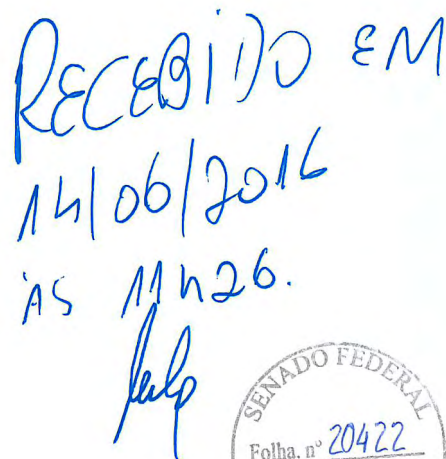 RECEBIDO EM
14/06/2016
ÀS 11h26.
SENADO FEDERAL
Folha, nº 20422